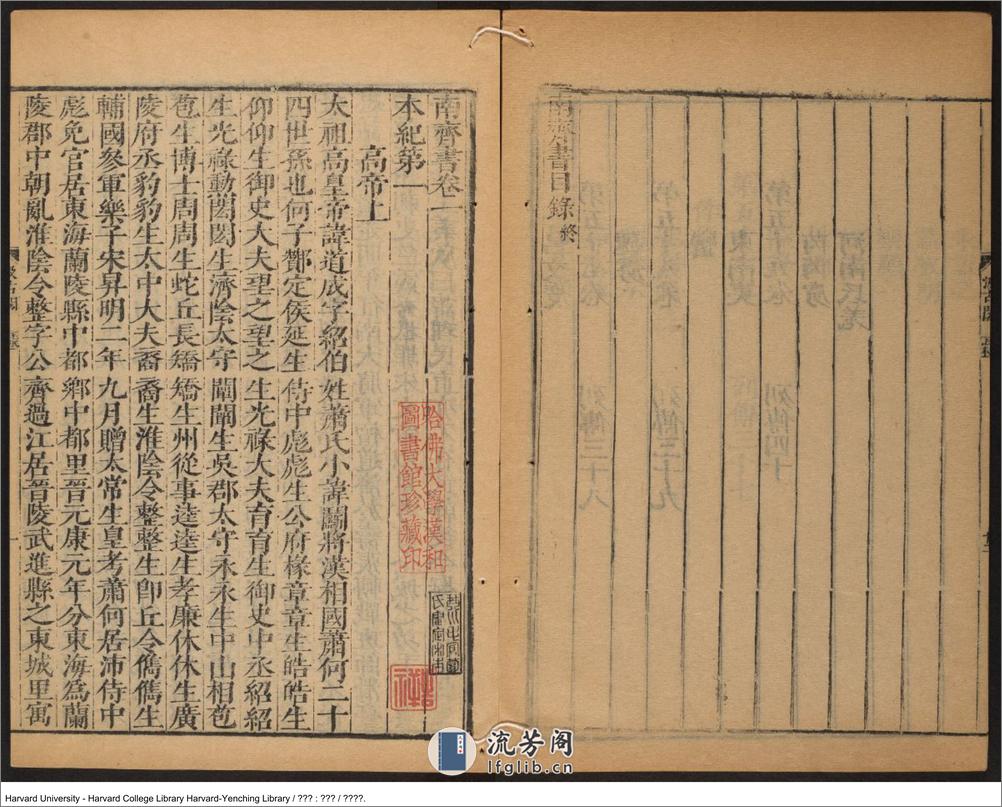 南齊書目錄終
汲古閣
南齊書卷一
本紀第一
高帝上
太祖高皇帝諱道成字紹伯姓蕭氏小諱鬬將漢相國蕭何二十
四世孫也何子酇定侯延生侍中彪彪生公府椽章章生皓皓生
仰仰生御史大夫望之望之生光祿大夫育育生御史中丞紹紹
生光祿勳閎閎生濟陰太守闡闡生吳郡太守永永生中山相苞
苞生博士周周生蛇丘長矯矯生州從事逵逵生孝廉休休生廣
陵府丞豹豹生太中大夫裔裔生淮陰令整整生卽丘令儁儁生
輔國參軍樂子宋昇明二年九月贈太常生皇考蕭何居沛侍中
彪免官居東海蘭陵縣中都鄉中都里晉元康元年分東海爲蘭
陵郡中朝亂淮陰令整字公齊過江居晉陵武進縣之東城里寓
哈佛大學漢和
圖書館珍藏印
流芳阁
lfglib.cn
Harvard University - Harvard College Library Harvard-Yenching Library / ??? : ??? / ????.